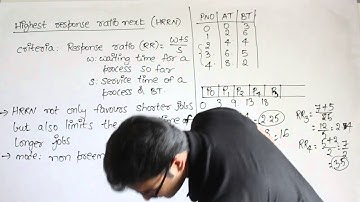 Highest response ratio next (HRRN)
criteria: Response ratio (RR) = w+s/s
w: waiting time for a
process so far
s: Service time of a
process & BT.
→ HRRN not only favours shorter jobs
but also limits the
Longer jobs
→ mode: non preem
PNO AT BT
0 0 3
1 2 6
2 4 4
3 6 5
4 8 2
P0 P1 P2 P4 P3
0 3 9 13 18
= 2.25
RR3 = 7+5
12
= 2.4
RR4 = 5+2 = 7
2 2
= 3.5